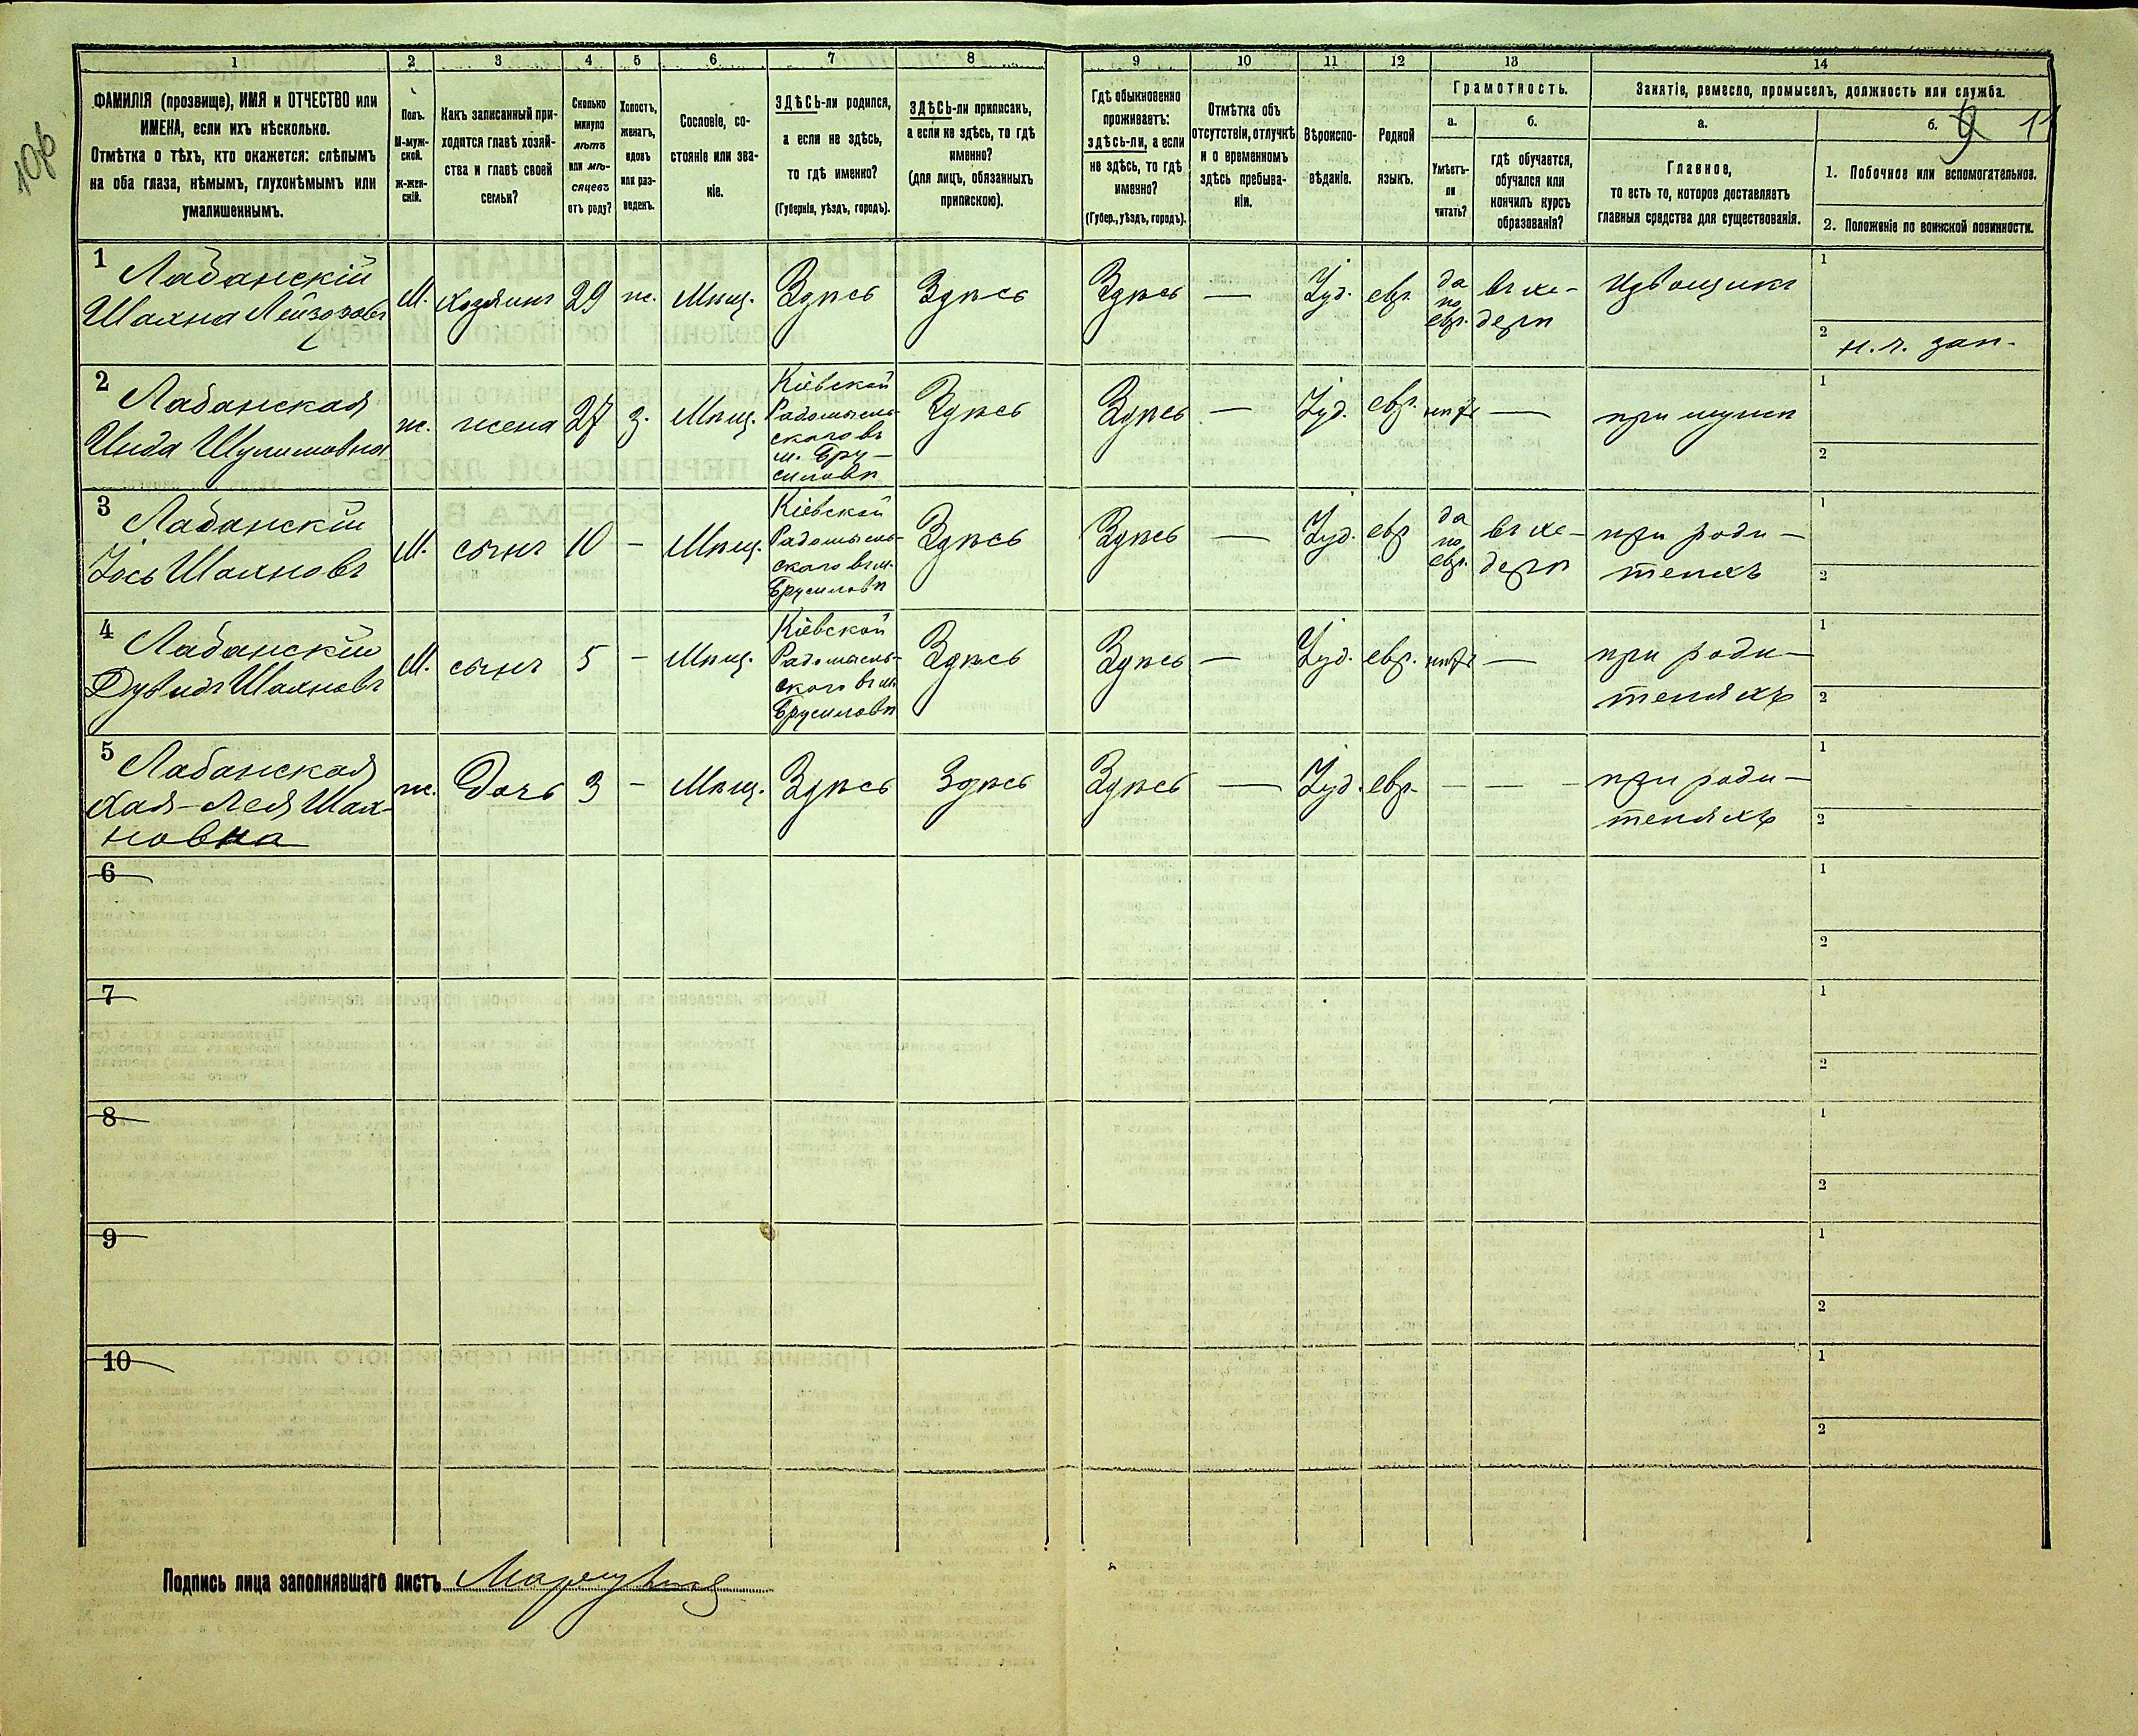 10об
1 2 3 4 5 6 7 8 9 10 11 12 13 14
ФАМИЛІЯ (прозвище), ИМЯ и ОТЧЕСТВО или
ИМЕНА, если ихъ нѣсколько.
Отмѣтка о тѣхъ, кто окажется: слѣпымъ
на оба глаза, нѣмымъ, глухонѣмымъ или
умалишеннымъ.
Полъ.
М-муж-
ской.
ж-жен-
скій.
Какъ записанный при-
ходится главѣ хозяй-
ства и главѣ своей
семьи?
Сколько
минуло
лѣтъ
или мѣ-
сяцевъ
отъ роду?
Холостъ,
женатъ,
вдовъ
или раз-
веденъ.
Сословіе, со-
стояніе или зва-
ніе.
ЗДѢСЬ-ли родился,
а если не здѣсь,
то гдѣ именно?
(Губернія, уѣздъ, городъ).
ЗДѢСЬ-ли приписанъ,
а если не здѣсь, то гдѣ
именно?
(для лицъ, обязанныхъ
припискою).
Гдѣ обыкновенно
проживаетъ:
здѣсь-ли, а если
не здѣсь, то гдѣ
именно?
(Губер., уѣздъ, городъ).
Отмѣтка объ
отсутствіи, отлучкѣ
и о временномъ
здѣсь пребыва-
ніи.
Вѣроиспо-
вѣданіе.
Родной
языкъ.
Грамотность.
а.
Умѣетъ-
ли
читать?
б.
гдѣ обучается,
обучался или
кончилъ курсъ
образованія?
Занятіе, ремесло, промыселъ, должность или служба.
а.
Главное,
то есть то, которое доставляетъ
главныя средства для существованія.
б. 9 11
1. Побочное или вспомогательное.
2. Положеніе по воинской повинности.
1
Лабанскій
Шахна Лейзоровъ
М.
хозяинъ
29
ж.
Мѣщ.
Здѣсь
Здѣсь
Здѣсь
—
Іуд.
евр.
да
по
евр.
въ хе-
дерѣ
Извощикъ
1
2 н. ч. зап.
2
Лабанская
Инда Шулимовна
ж.
жена
27
з.
Мѣщ.
Кіевской
Радомысль-
скаго въ
м. Бру-
силовѣ
Здѣсь
Здѣсь
—
Іуд.
евр.
нѣтъ
—
при мужѣ
1
2
3
Лабанскій
Іось Шахновъ
М.
сынъ
10
—
Мѣщ.
Кіевской
Радомысль-
скаго въ м.
Брусиловѣ
Здѣсь
Здѣсь
—
Іуд.
евр
да
по
евр.
въ хе-
дерѣ
при роди-
теляхъ
1
2
4
Лабанскій
Дувидъ Шахновъ
М.
сынъ
5
—
Мѣщ.
Кіевской
Радомысль-
скаго въ м.
Брусиловѣ
Здѣсь
Здѣсь
—
Іуд.
евр.
нѣтъ
—
при роди-
теляхъ
1
2
5
Лабанская
Хая-Лея Шах-
новна
ж.
Дочь
3
—
Мѣщ.
Здѣсь
Здѣсь
Здѣсь
—
Іуд.
евр.
—
—
при роди-
теляхъ
1
2
6
1
2
7
1
2
8
1
2
9
1
2
10
1
2
Подпись лица заполнявшаго листъ